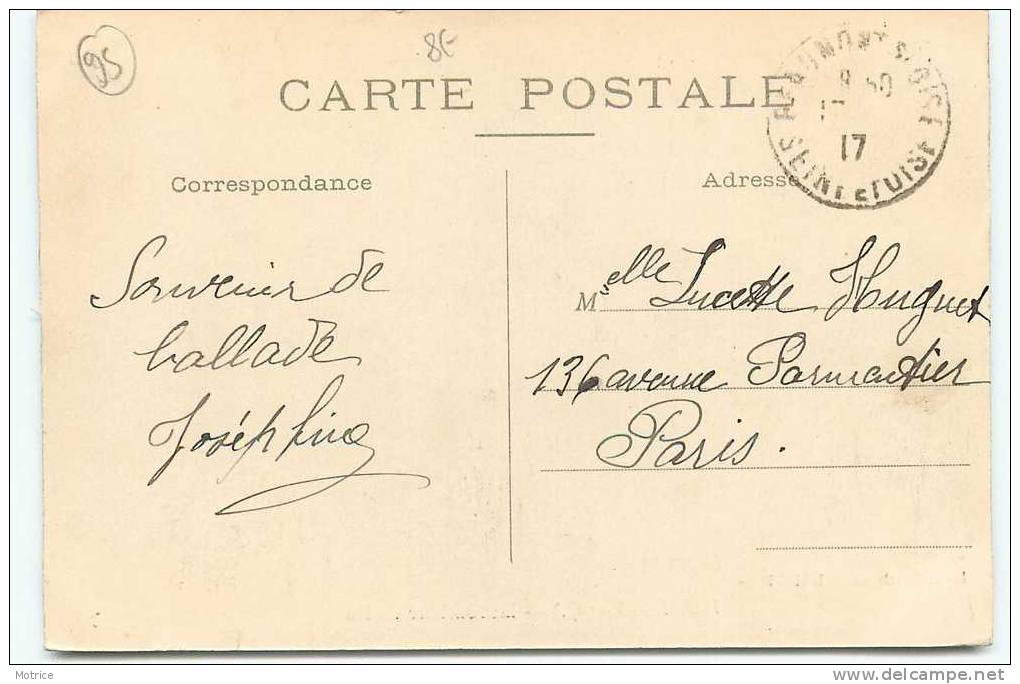 95
8€
CARTE POSTALE
BEAUMONT S. OISE
8 50
17
SEINE ET OISE
Correspondance
Adresse
Souvenir de
ballade
Joséphine
Melle Lucette Huguet
136 avenue Parmentier
Paris.
Motrice
www.delcampe.net